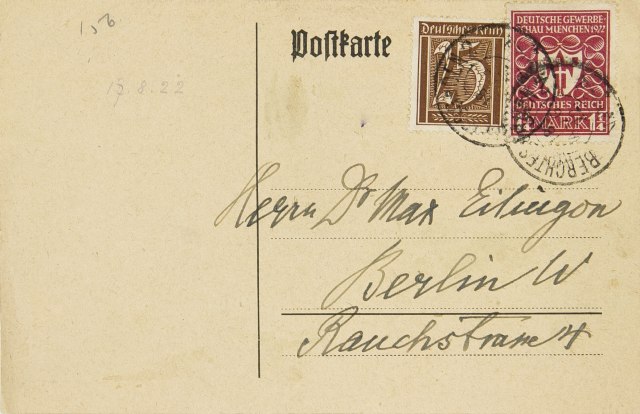 156
19.8.22
Postkarte
Deutsches Reich
25
DEUTSCHE GEWERBE-
SCHAU MUENCHEN 1922
DEUTSCHES REICH
1¼ MARK 1¼
BERCHTES
Herrn Dr Max Eitingon
Berlin W
Rauchstrasse 4